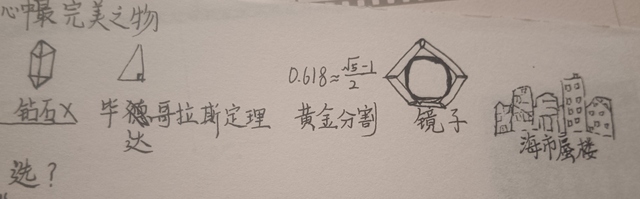 心中最完美之物
0.618≈(√5-1)/2
钻石× 毕达哥拉斯定理 黄金分割 镜子
海市蜃楼
选？